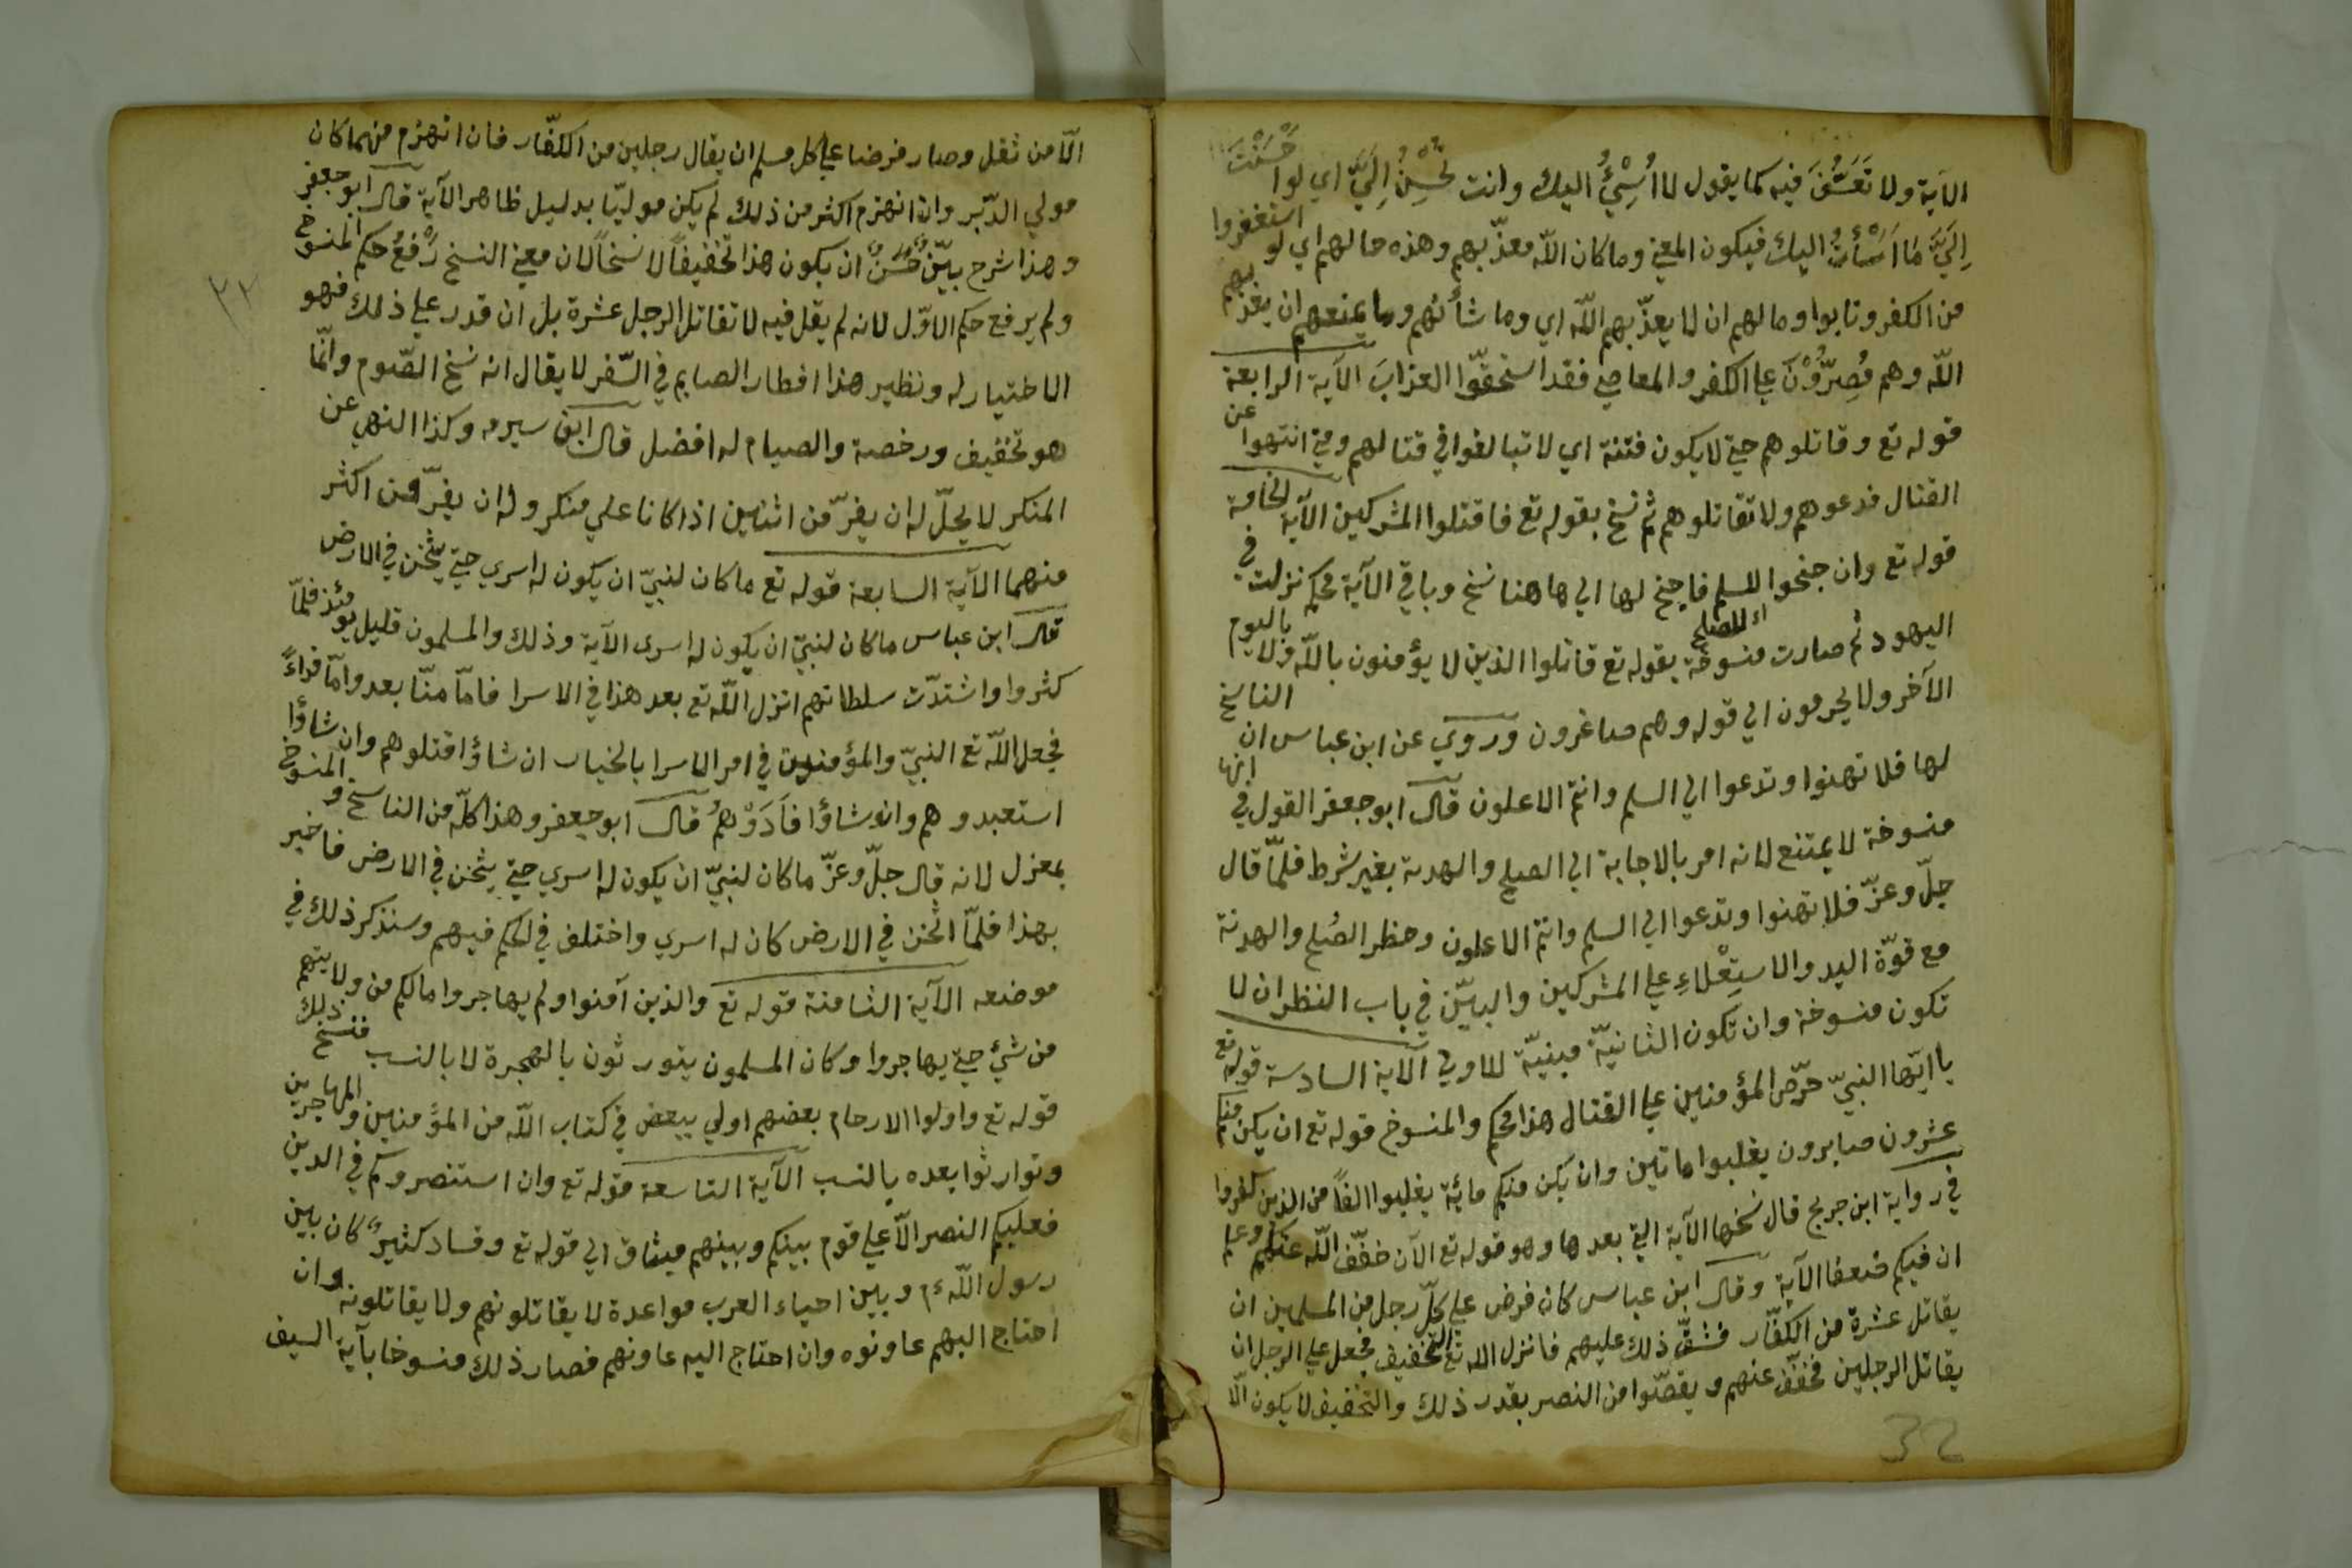 الآية ولا تعسّف فيه كما يقول لا اُسِئُ اليك وانت تُحْسِنُ اِلَيَّ اي لوا حْسَنْتَ
اِلَيَّ مَا اَسَأْتُ اليك فيكون المعنى وما كان اللّه معذّبهم وهذه حالهم اي لو استغفروا
من الكفر وتابوا وما لهم ان لا يعذّبهم اللّه اي وما شأنهم وما يمنعهم ان يعذّبهم
اللّه وهم مُصِرُّوْنَ على الكفر والمعاصي فقد استحقّوا العذابَ الآية الرابعة
قوله تع وقاتلوهم حتى لا يكون فتنة اي لا تبالغوا في قتالهم ومتى انتهوا عن
القتال فدعوهم ولا تقاتلوهم ثم نسخ بقوله تع فاقتلوا المشركين الآية الخامة
قوله تع وان جنحوا للسلم فاجنح لها الى هاهنا نسخ وباقي الآية محكم نزلت في
اي للصلح
اليهود ثم صارت منسوخة بقوله تع قاتلوا الذين لا يؤمنون باللّه ولا باليوم
الآخر ولا يحرمون الى قوله وهم صاغرون وروي عن ابن عباس ان الناسخ
لها فلا تهنوا وتدعوا الى السلم وانتم الاعلون قال ابو جعفر القول في انها
منسوخة لا يمتنع لانه امر بالاجابة الى الصلح والهدنة بغير شرط فلمّا قال
جلّ وعزّ فلا تهنوا وتدعوا الى السلم وانتم الاعلون وحظر الصُلح والهدنة
مع قوّة اليد والاستِعْلاءِ على المشركين والبيّن في باب النظر ان لا
تكون منسوخة وان تكون الثانيّة مبنيّة للاولى الآية السادسة قوله تع
يا ايّها النبيّ حرّض المؤمنين على القتال هذا محكم والمنسوخ قوله تع ان يكن منكم
عشرون صابرون يغلبوا ماتين وان يكن منكم مائة يغلبوا الفاً من الذين كفروا
في رواية ابن جريج قال نسخها الآية التي بعدها وهو قوله تع الآن خفّف اللّه عنكم وعلم
ان فيكم ضعفا الآية وقال ابن عباس كان فرض على كلّ رجل من المسلمين ان
يقاتل عشرة من الكفّار فشقّ ذلك عليهم فانزل الله تع التخفيف فجعل على الرجل ان
يقاتل الرجلين فخفّف عنهم و نقصّوا من النصر بقدر ذلك والتخفيف لا يكون الّا
32
الّا من ثقل وصار فرضا على كل مسلم ان يقال رجلين من الكفّار فان انهزم منهما كان
مولى الدّبر وان انهزم اكثر من ذلك لم يكن موليّا بدليل ظاهر الآية قال ابو جعفر
وهذا شرح بيّنٌ حَسَنٌ ان يكون هذا تخفيفاً لا نسخاً لان معنى النسخ رَفْعُ حكم المنسوخ
ولم يرفع حكم الاوّل لانه لم يقل فيه لا تقاتل الرجل عشرة بل ان قدر على ذلك فهو
٣٢
الاختيار له ونظير هذا افطار الصايم في السّفر لا يقال انه نسخ الصّوم وانّما
هو تخفيف ورخصة والصيام له افضل قال ابن سيرمه وكذا النهي عن
المنكر لا يحلّ له ان يفرّ من اثنين اذا كانا على منكر وله ان يفرّ من اكثر
منهما الآية السابعة قوله تع ما كان لنبيّ ان يكون له اسرى حتى يثخن في الارض
قال ابن عباس ما كان لنبيّ ان يكون له اسرى الآية وذلك والمسلمون قليل يومئذ فلمّا
كثروا واشتدّت سلطانهم انزل اللّه تع بعد هذا في الاسرا فامّا منّا بعد وامّا فداءً
فجعل اللّه تع النبيّ والمؤمنين في امر الاسرا بالخيار ان شاؤا قتلوهم وان شاؤا
استعبدوهم وان شاؤا فَادَوْهُمْ قال ابو جعفر وهذا كلّه من الناسخ والمنسوخ
بمعزل لانه قال جلّ وعزّ ما كان لنبيّ ان يكون له اسرى حتى يثخن في الارض فاخبر
بهذا فلمّا اثخن في الارض كان له اسرى واختلف في الحكم فيهم وسنذكر ذلك في
موضعه الآية الثامنة قوله تع والذين آمنوا ولم يهاجروا مالكم من ولايتهم
من شئ حتى يهاجروا وكان المسلمون يتورثون بالهجرة لا بالنسب فنسخ ذلك
قوله تع واولوا الارحام بعضهم اولى ببعض في كتاب اللّه من المؤمنين والمهاجرين
وتوارثوا بعده بالنسب الآية التاسعة قوله تع وان استنصروكم في الدين
فعليكم النصر الّا على قوم بينكم وبينهم ميثاق الى قوله تع وفساد كثيرٌ كان بين
رسول اللّه ءم وبين احياء العرب مواعدة لا يقاتلونهم ولا يقاتلونه وان
احتاج اليهم عاونوه وان احتاج اليه عاونهم فصار ذلك منسوخا بآية السيف